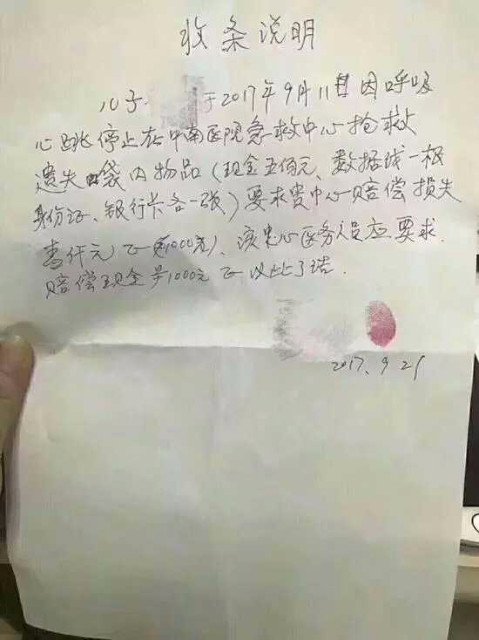 收条说明
儿子 于2017年9月11日因呼吸
心跳停止在中南医院急救中心抢救
遗失口袋内物品(现金五佰元、数据线一根
身份证、银行卡各一张)要求贵中心赔偿损失
壹仟元正(1000元)、该中心医务人员应要求
赔偿现金1000元正 以此了结.
2017.9.21